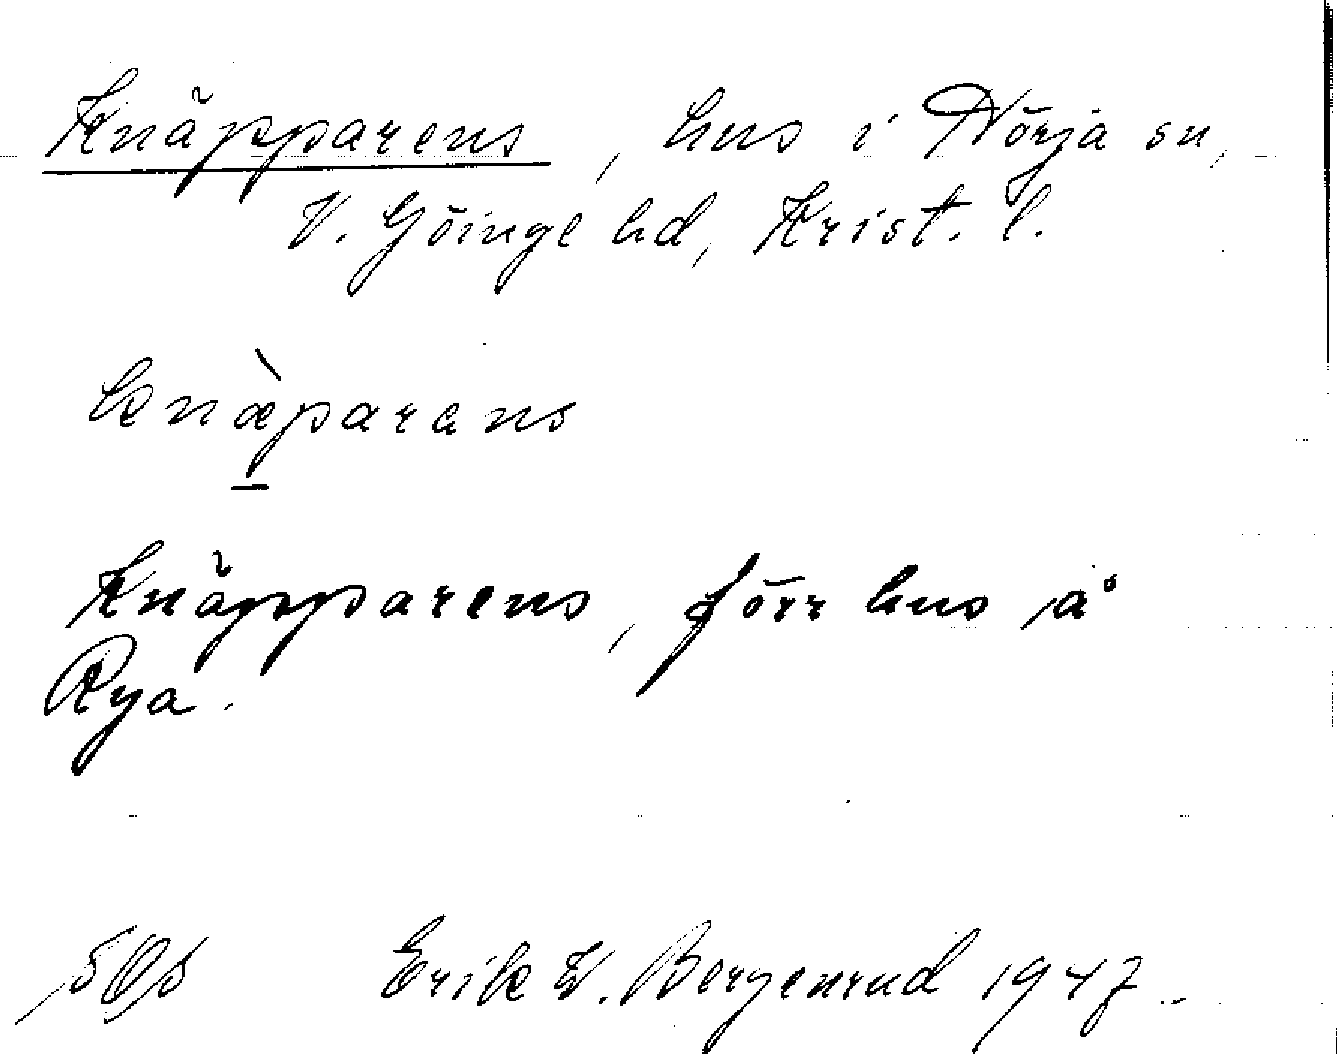 Knäpparens, hus i Nörja sn,
V. Göinge hd, Krist. l.
knæ̀parens
Knäpparens, förr hus å
Rya.
Erik W. Bergenrud 1947.